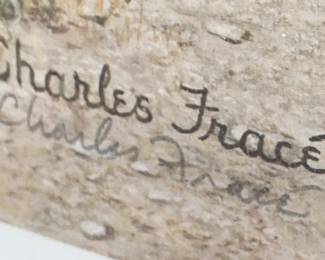 Charles Fracé
Charles Fracé